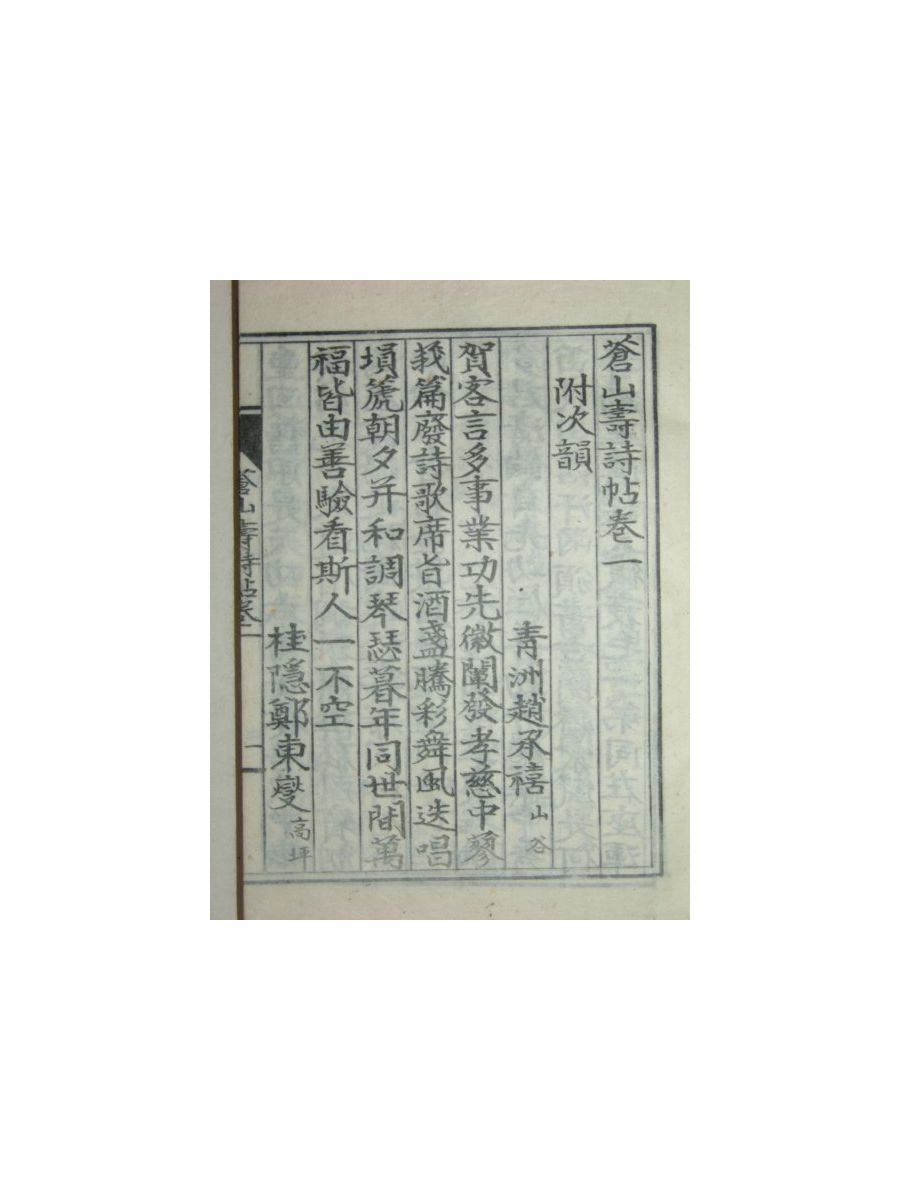 蒼山壽詩帖卷一
附次韻
青洲趙承禧 山谷
賀客言多事業功先徽闡發孝慈中蓼
莪篇廢詩歌席旨酒盞騰彩舞風迭唱
塤篪朝夕并和調琴瑟暮年同世間萬
福皆由善驗看斯人一不空
桂隱鄭東燮 高坪
蒼山壽詩帖卷一
一